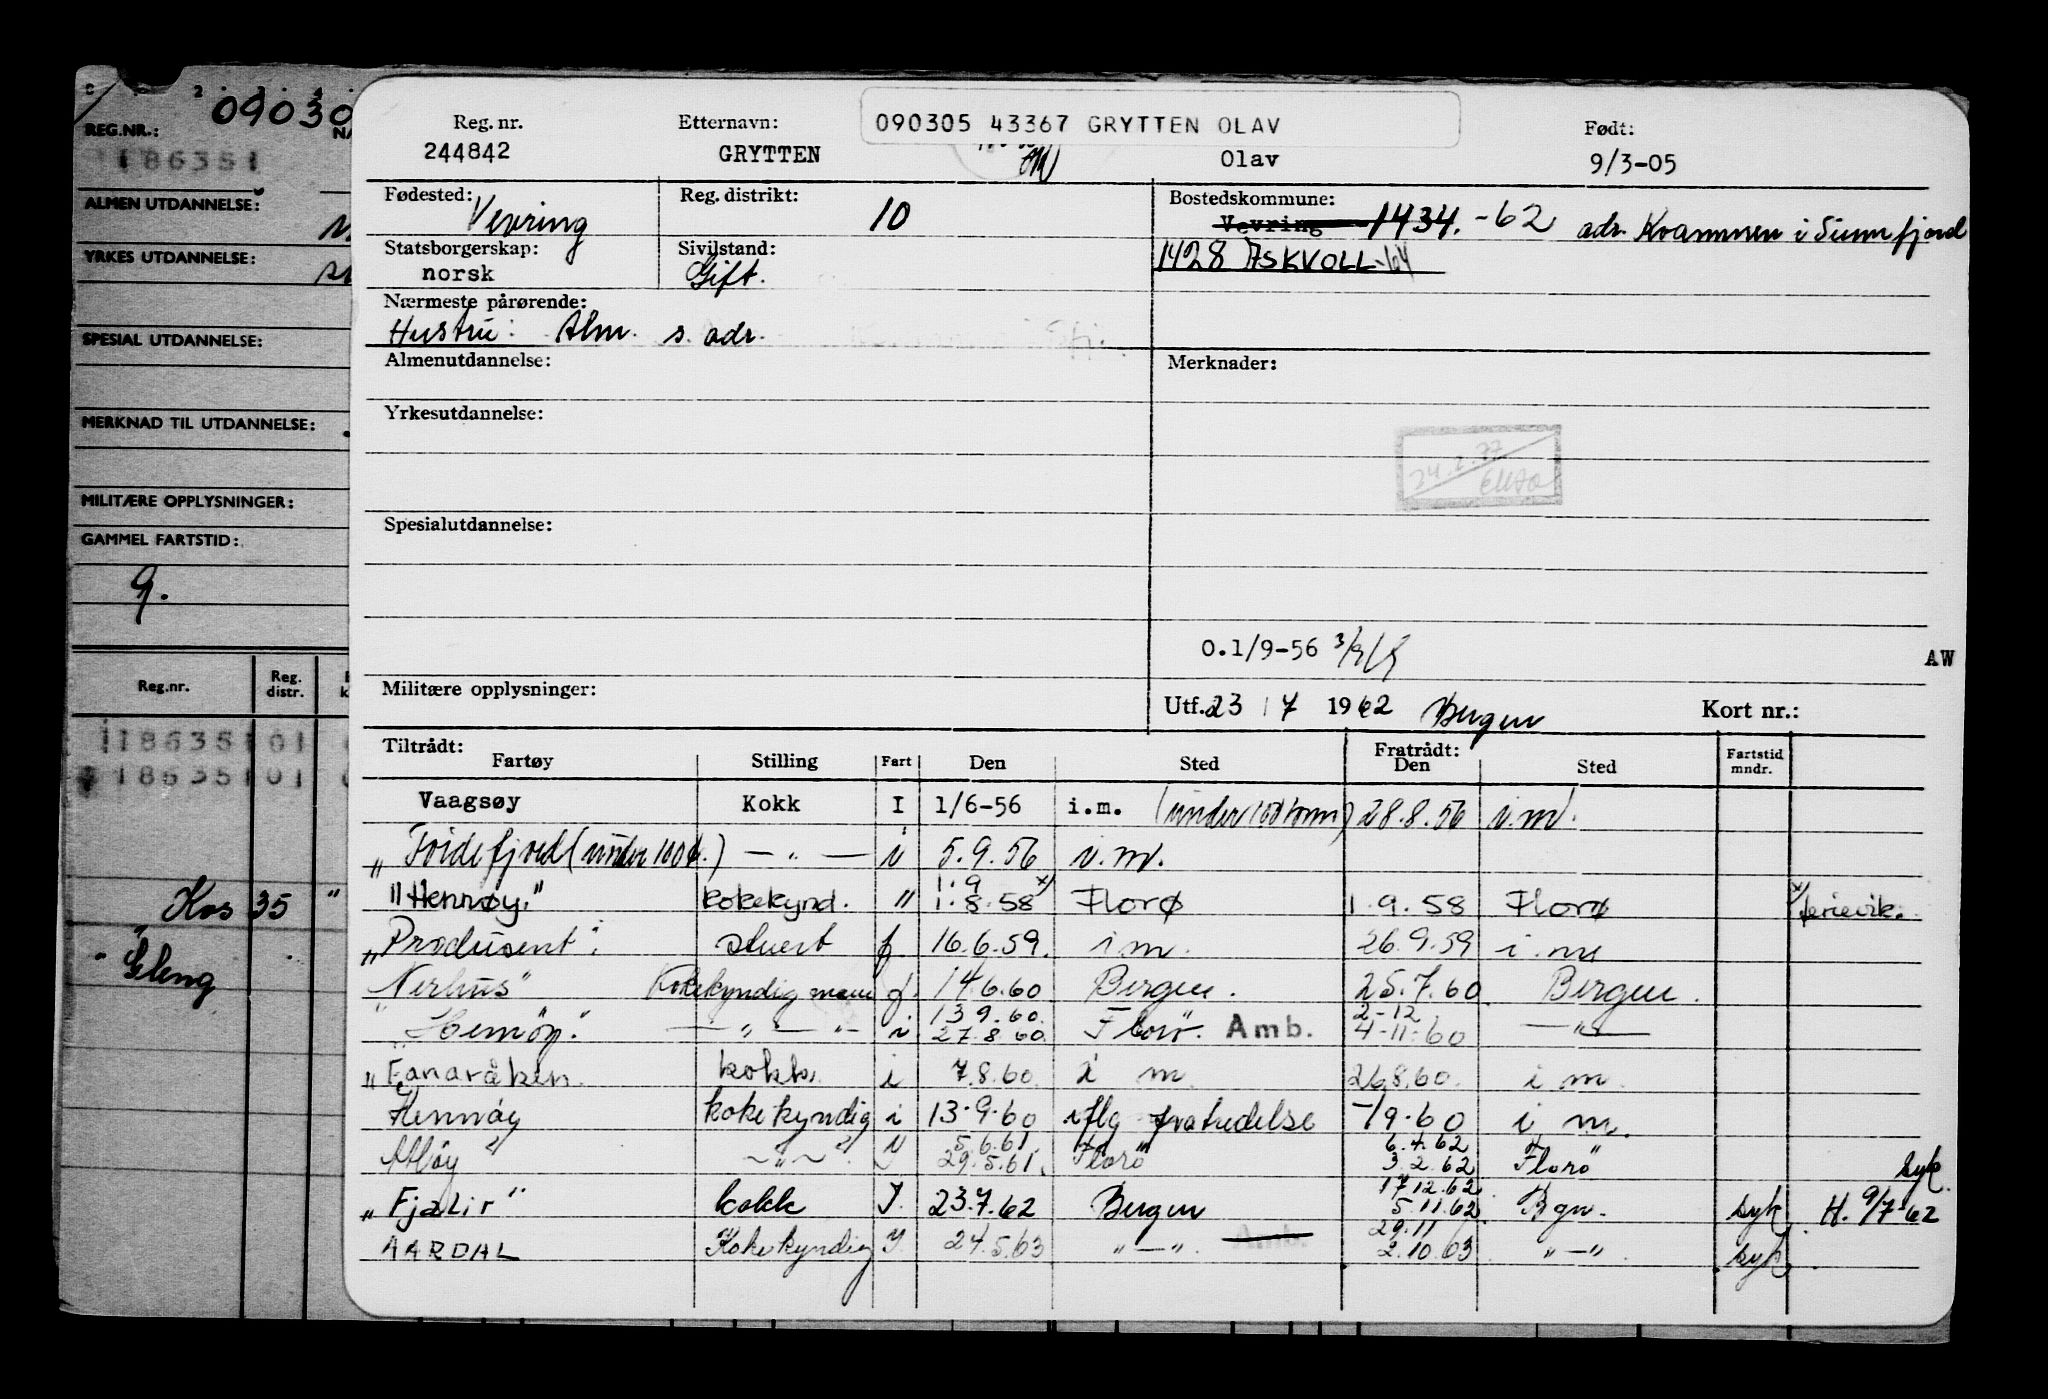 09030
REG.NR.:
186351
ALMEN UTDANNELSE:
YRKES UTDANNELSE:
SPESIAL UTDANNELSE:
MERKNAD TIL UTDANNELSE:
MILITÆRE OPPLYSNINGER:
GAMMEL FARTSTID:
9.
Reg.nr. Reg. distr.
118635101
118635101
Kos 35 "
Gleng
090305 43367 GRYTTEN OLAV
Reg. nr. Etternavn: Født:
244842 GRYTTEN Olav 9/3-05
Fødested: Vevring Reg. distrikt: 10 Bostedskommune: Vevring 1434.-62 adr. Kvammen i Sunnfjord
Statsborgerskap: norsk Sivilstand: Gift. 1428 ASKVOLL-64
Nærmeste pårørende:
Hustru: Alm. s. adr.
Almenutdannelse: Merknader:
Yrkesutdannelse:
24.2.77
Spesialutdannelse:
O.1/9-56
AW
Militære opplysninger: Utf. 23/7 1962 Bergen Kort nr.:
Tiltrådt: Fartøy Stilling Fart Den Sted Fratrådt: Den Sted Fartstid mndr.
Vaagsøy Kokk I 1/6-56 i.m. (under 100 tonn) 28.8.56 i.m.
(under 100 t.) — " — i 5.9.56 i.m.
1.9
"Hennøy" kokekynd. " 1.8.58 x) Florø 1.9.58 Florø x) ferievik.
"Produsent" stuert f 16.6.59. i m. 26.9.59 i m
Nerhus" Kokekyndig mann f. 14.6.60 Bergen. 25.7.60 Bergen.
13.9.60. 2-12
" — " — i 27.8.60. Florö. Amb. 4-11-60 — " —
"Fanaråken. kokk i 7.8.60. i m. 26.8.60. i m.
Hennøy kokekyndig i 13.9.60 iflg fratredelse -/9-60 i m.
5.6.61. 6.4.62
— " — 29.5.61. Florö 3.2.62 Florö" syk.
17.12.62
"Fjalir" kokk I. 23.7.62 Bergen 5.11.62 Bgn. syk H. 9/7-62
29.11
AARDAL Kokekyndig I. 24.5.63 " — ". Amb. 2.10.63 " — " syk